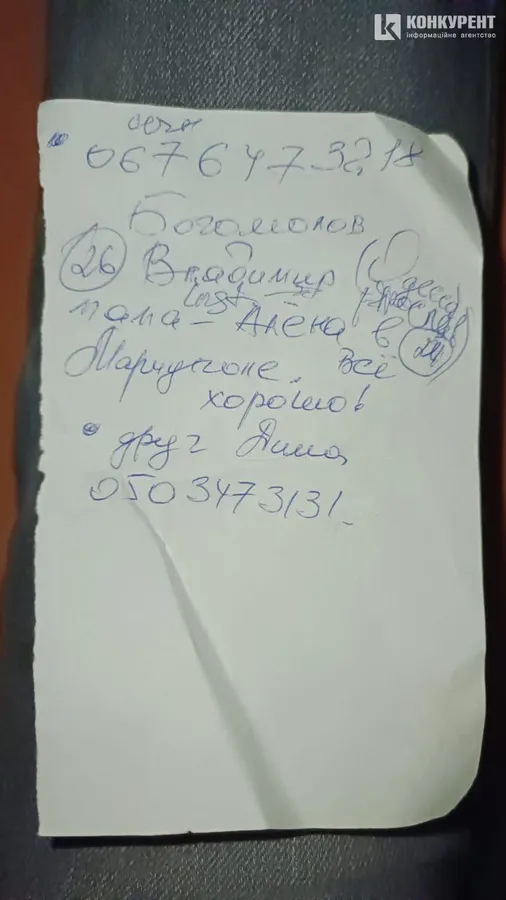 КОНКУРЕНТ
інформаційне агентство
067 647 32 18
Богомолов
26 Владимир (Одесса
папа - Алёна в 24)
Мариуполе. Всё
хорошо!
друг Дима
050 3473131